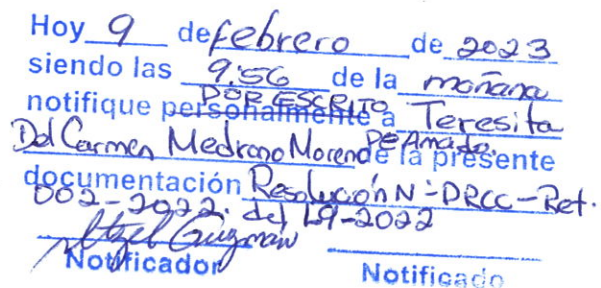 Hoy 9 de febrero de 2023
siendo las 9:56 de la mañana
POR ESCRITO
notifique personalmente a Teresita
Del Carmen Medrano Moreno de la presente
De Amado.
documentación Resolución N=DRCC-Ret.
002-2022. del 19-2022
Itzel Guzmán
Notificador Notificado